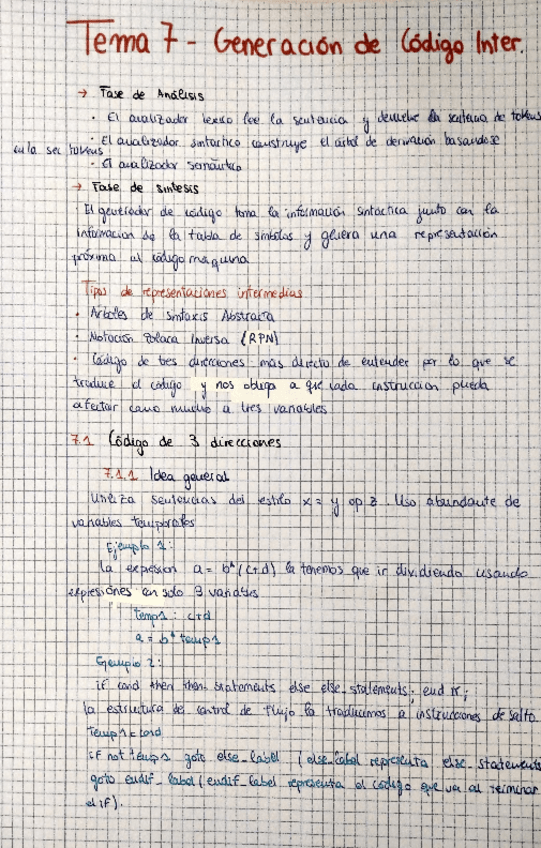 Tema 7 - Generación de Código Inter.
→ Fase de Análisis
· El analizador lexico lee la sentencia y devuelve la sentencia de tokens
· El analizador sintactico construye el árbol de derivación basandose
en la sec tokens
· El analizador semántico
→ Fase de sintesis
· El generador de código toma la información sintactica junto con la
información de la tabla de simbolos y genera una representación
próxima al código maquina
Tipos de representaciones intermedias
· Arboles de sintaxis Abstracta
· Notación Polaca Inversa (RPN)
· Código de tres direcciones más directo de entender por lo que se
traduce el código y nos obliga a que cada instrucción pueda
afectar como mucho a tres variables
7.1 Código de 3 direcciones
7.1.1 Idea general
Utiliza sentencias del estilo x = y op z. Uso abundante de
variables temporales
Ejemplo 1:
la expresión a = b*(c+d) la tenemos que ir dividiendo usando
expresiónes con solo 3 variables
temp1 : c+d
a = b* temp1
Ejemplo 2:
if cond then then_statements else else_statements; end if;
la estructura de control de flujo la traducimos a instrucciones de salto
temp1 = cond
if not temp1 goto else_label (else_label representa else_statements
goto endif_label (endif_label representa el código que va al terminar
el if).